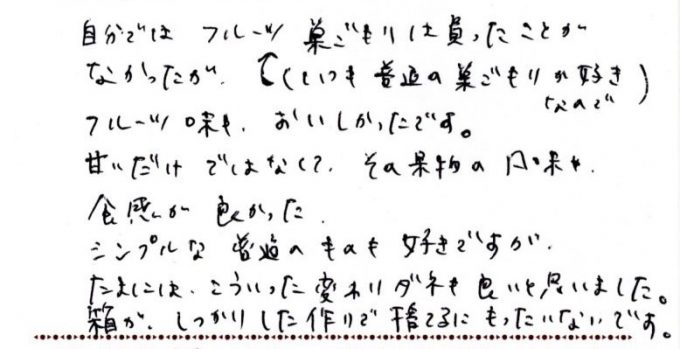 自分では フルーツ 巣ごもりは買ったことが
なかったが、(いつも 普通の巣ごもりが好き
なので)
フルーツ味も、おいしかったです。
甘いだけ ではなくて、その果物の風味や、
食感が 良かった、
シンプルな 普通のものも 好きですが、
たまには、こういった変わりダネも良いと思いました。
箱が、しっかりした作りで捨てるにもったいないです。